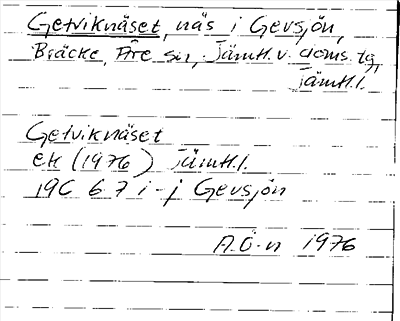 Getviknäset, näs i Gevsjön,
Bräcke, Åre sn, Jämtl. v. doms. tg,
Jämtl. l.
Getviknäset
ek (1976) Jämtl. l.
19C 6 7 i-j Gevsjön
A.Ö-n 1976